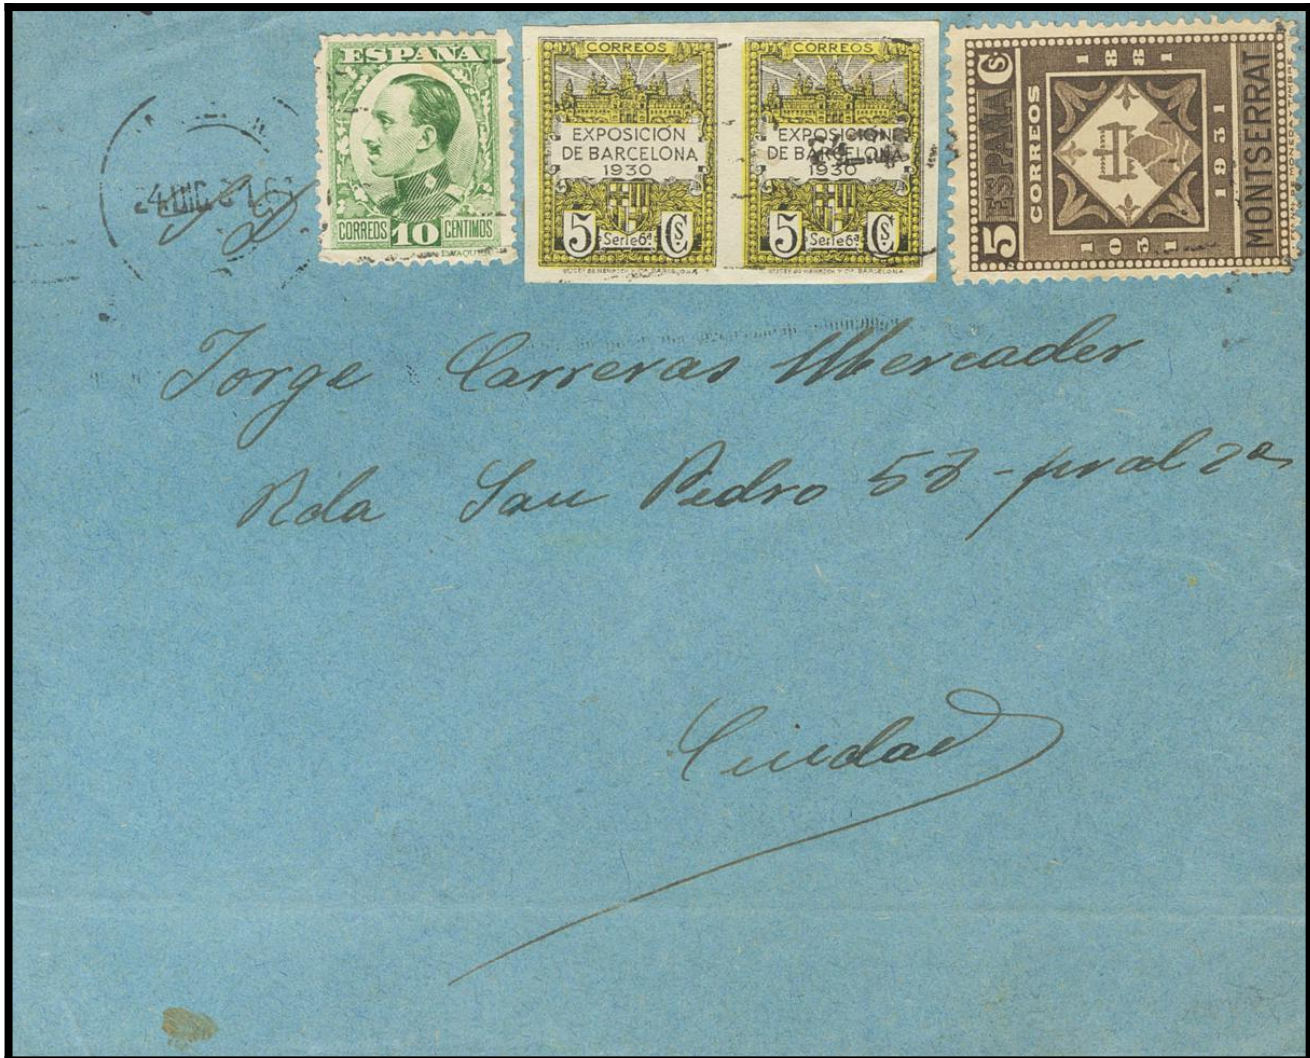 ESPAÑA
CORREOS 10 CENTIMOS
CORREOS
EXPOSICIÓN
DE BARCELONA
1930
5 Serie 6ª Cs.
CORREOS
EXPOSICIÓN
DE BARCELONA
1930
5 Serie 6ª Cs.
5 ESPAÑA Cs
CORREOS
1031 1881
1931
MONTSERRAT
Jorge Carreras Mercader
Rda San Pedro pral 2ª
Ciudad